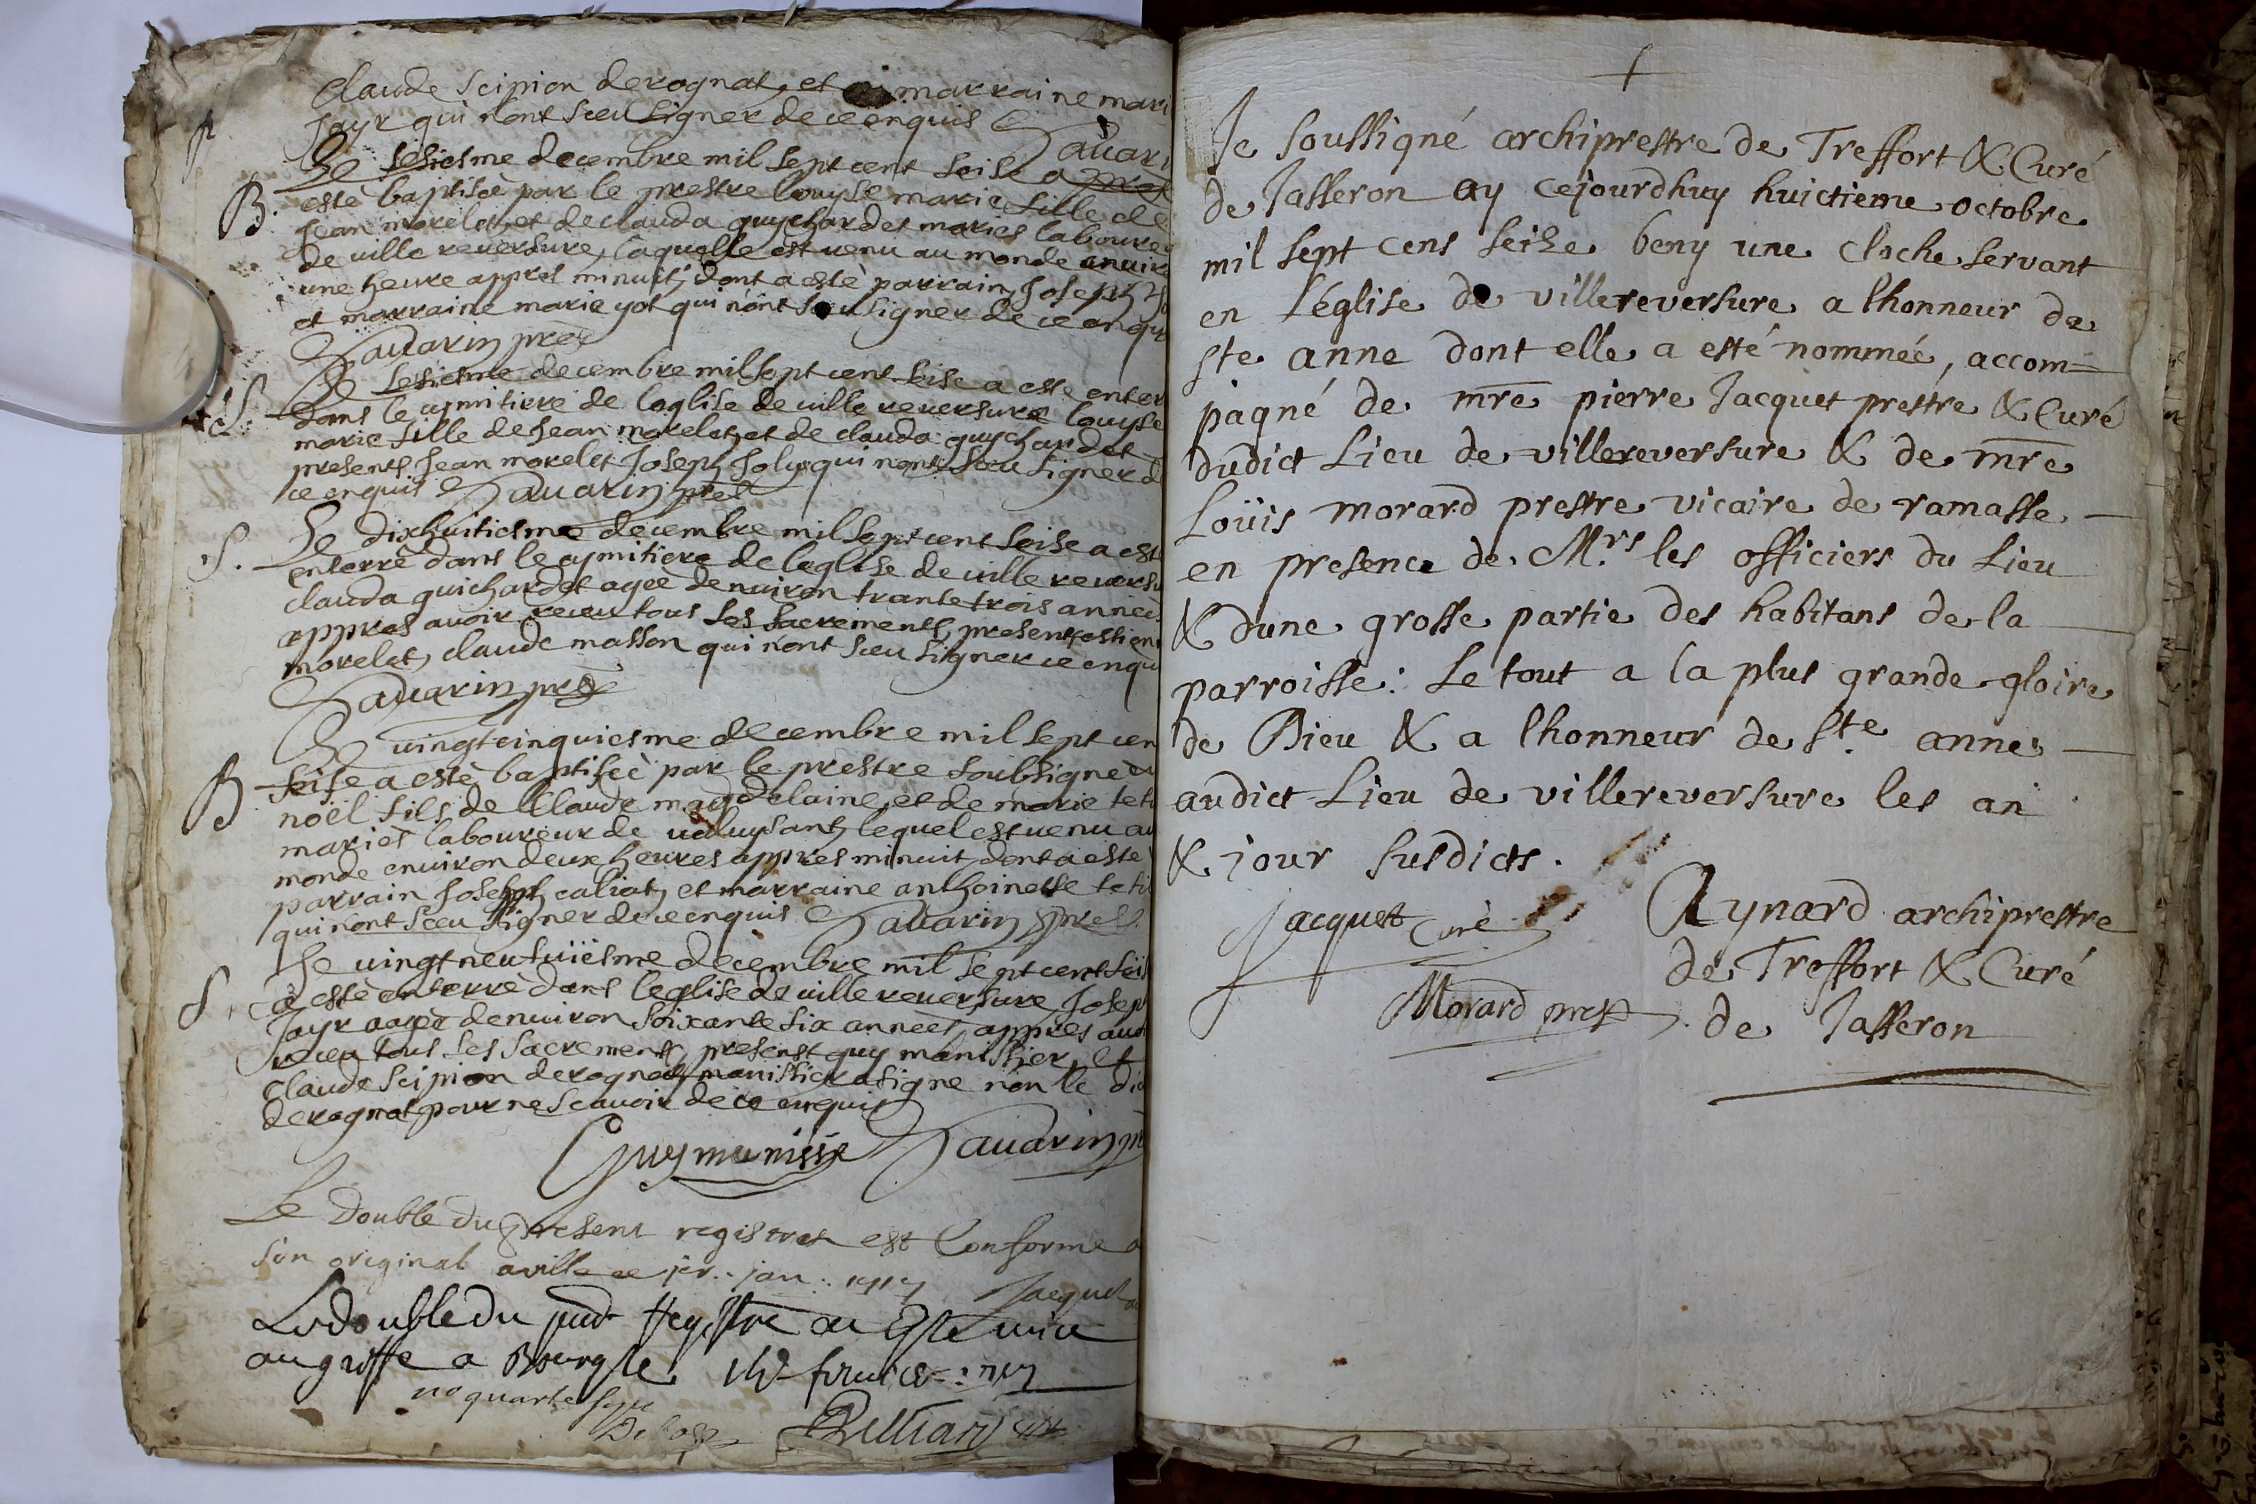 claude scipion derognat, et marraine mari
Jayr qui nont sceu signer de ce enquis Savari
B. Le sesiesme decembre mil sept cent seise a
esté baptiseè par le prestre louyse marie fille de
Jean morelet, et de clauda guychardet mariés laboure
de ville reversure, laquelle est venu au monde enuir
une heure appres minuit, dont a estè parrain Joseph
et marraine marie yot qui nont sceu signer de ce enqu
Savarin pre
S. Le sesiesme decembre mil sept cent seise a este enter
dans le cymitiere de leglise de ville reversure louyse
marie fille de Jean morelet, et de clauda guychardet
presents Jean morelet Joseph Joly qui nont sceu signer d
ce enquis Savarin pre
S. Le dixhuitiesme decembre mil sept cent seise a est
enterrè dans le cymitiere de leglise de ville reversu
clauda guichardet agee denuiron trante trois annees
appres auoir receu tous ses sacrements, presents estien
morelet, claude masson qui nont sceu signer ce enqu
Savarin pre
Le uingtcinquiesme decembre mil sept cen
B seise a estè baptiseè par le prestre soubsignè
noël fils de Claude magdelaine, et de marie teti
mariés laboureur de ualuysant, lequel est uenu au
monde enuiron deux heures appres minuit, dont a estè
parrain Joseph caliat, et marraine anthoinette teti
qui nont sceu signer de ce enquis Savarin pre
Le uingt neufuiesme decembre mil sept cent seis
S. a estè enterrè dans leglise de ville reuersure Josep
Jayr aagè denuiron soixante six anneés, appres auoi
receu tous ses sacrements, present guy manissier, et
claude scipion derognat, manissier a signe non le di
derognat pour ne scauoir de ce enquis
Guy manissie Savarin pr
Le Double du present registre est Conforme a
son original a ville ce jer. jan: 1717 Jacquet
Le double du pnt Registre a Esté mis
au greffe a Bourg le
+
Je soussigné archiprestre de Treffort & Curé
de Jasseron ay cejourdhuy huictieme octobre
mil sept cens seize beny une cloche servant
en l'église de villereversure a lhonneur de
ste anne dont elle a esté nommée, accom=
pagné de mre pierre Jacquet prestre & Curé
dudict Lieu de villereversure & de mre
Loüis morard prestre vicaire de ramasse
en presence de Mrs les officiers du Lieu
& dune grosse partie des habitans de la
parroisse: Le tout a la plus grande gloire
de Dieu & a lhonneur de Ste anne
audict Lieu de villereversure les an
& jour susdicts.
Jacquet Curè
Aynard archiprestre
de Treffort & Curé
Morard prest
de Jasseron